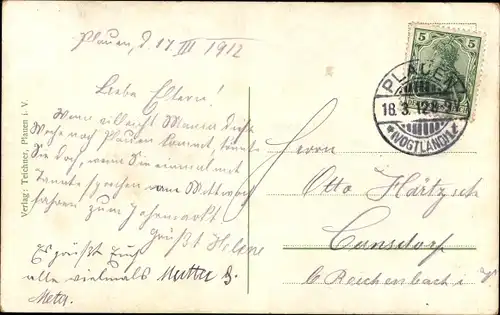 Plauen, d 17 III 1912
Liebe Eltern!
Wenn vielleicht Mama diese
Woche nach Plauen kommt, könnte
Sie doch, wenn Sie einmal mit
Tante sprechen am Mittwoch
fahren zum Jahrmarkt
Grüßt Helene
Es grüßt Euch
alle vielmals Mutter &
Meta.
Verlag: Teichner, Plauen i. V.
5 5
PLAUEN
18.3.12.8-9N
*(VOGTLAND)1*
Herrn
Otto Härtzsch
Cunsdorf
b Reichenbach i V